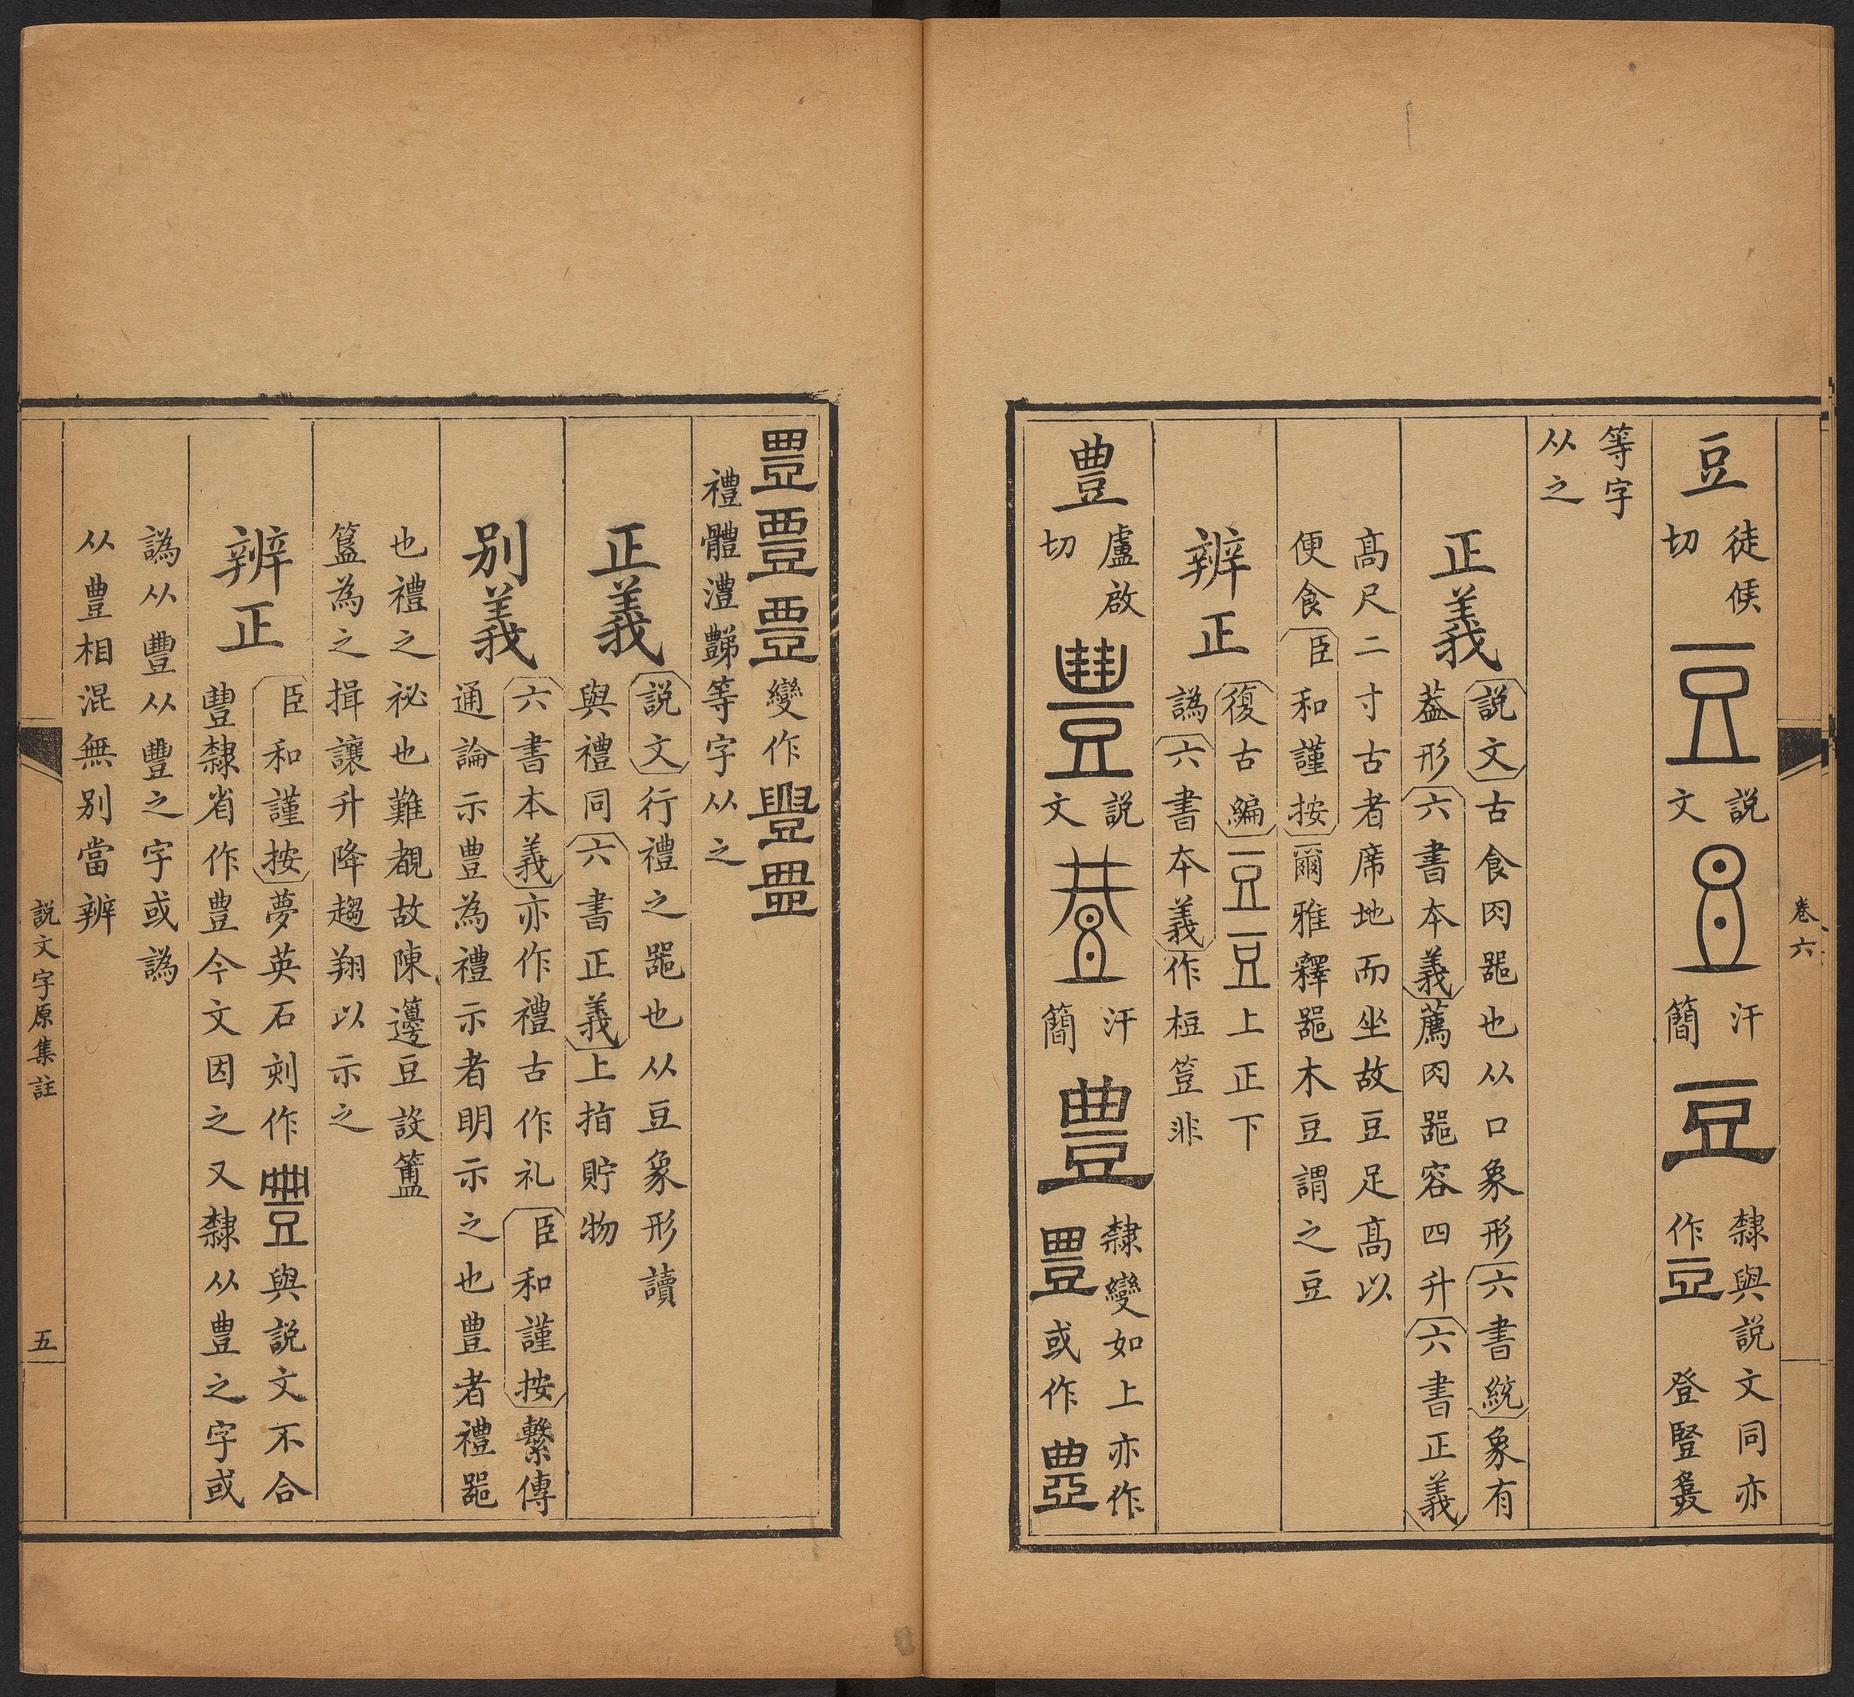 卷六
豆
徒候
切
說
文
汗
簡
隸與說文同亦
作豆
登豎䖒
等字
从之
正義
說文古食肉噐也从口象形六書統象有
葢形六書本義薦肉噐容四升六書正義
高尺二寸古者席地而坐故豆足高以
便食臣和謹按爾雅釋噐木豆謂之豆
辨正
復古編豆豆上正下
譌六書本義作梪荳非
豊
盧啟
切
說
文
汗
簡
豊
隸變如上亦作
豊或作豊
豊豊豊變作豊豊
禮體澧豑等字从之
正義
說文行禮之噐也从豆象形讀
與禮同六書正義上指貯物
别義
六書本義亦作禮古作礼臣和謹按繫傳
通論示豊為禮示者明示之也豊者禮噐
也禮之祕也難覩故陳籩豆設簠
簋為之揖讓升降趨翔以示之
辨正
臣和謹按夢英石刻作豐與說文不合
豐隸省作豊今文因之又隸从豊之字或
譌从豐从豐之字或譌
从豊相混無别當辨
說文字原集註
五